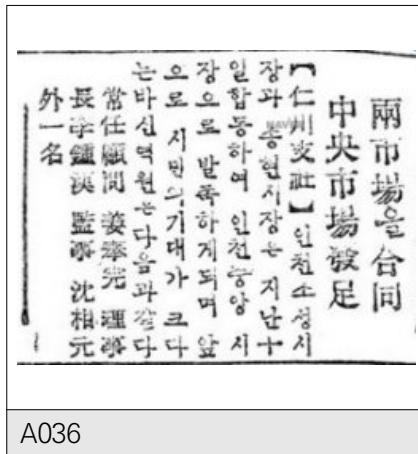 兩市場을合同
中央市場發足
【仁川支社】인천소성시
장과 송현시장은 지난十
일합동하여 인천중앙시
장으로발족하게되며 앞
으로 시민의기대가 크다
는바신역원은다음과같다
常任顧問 姜奉完 理事
長李鍾漢 監事 沈相元
外一名
A036